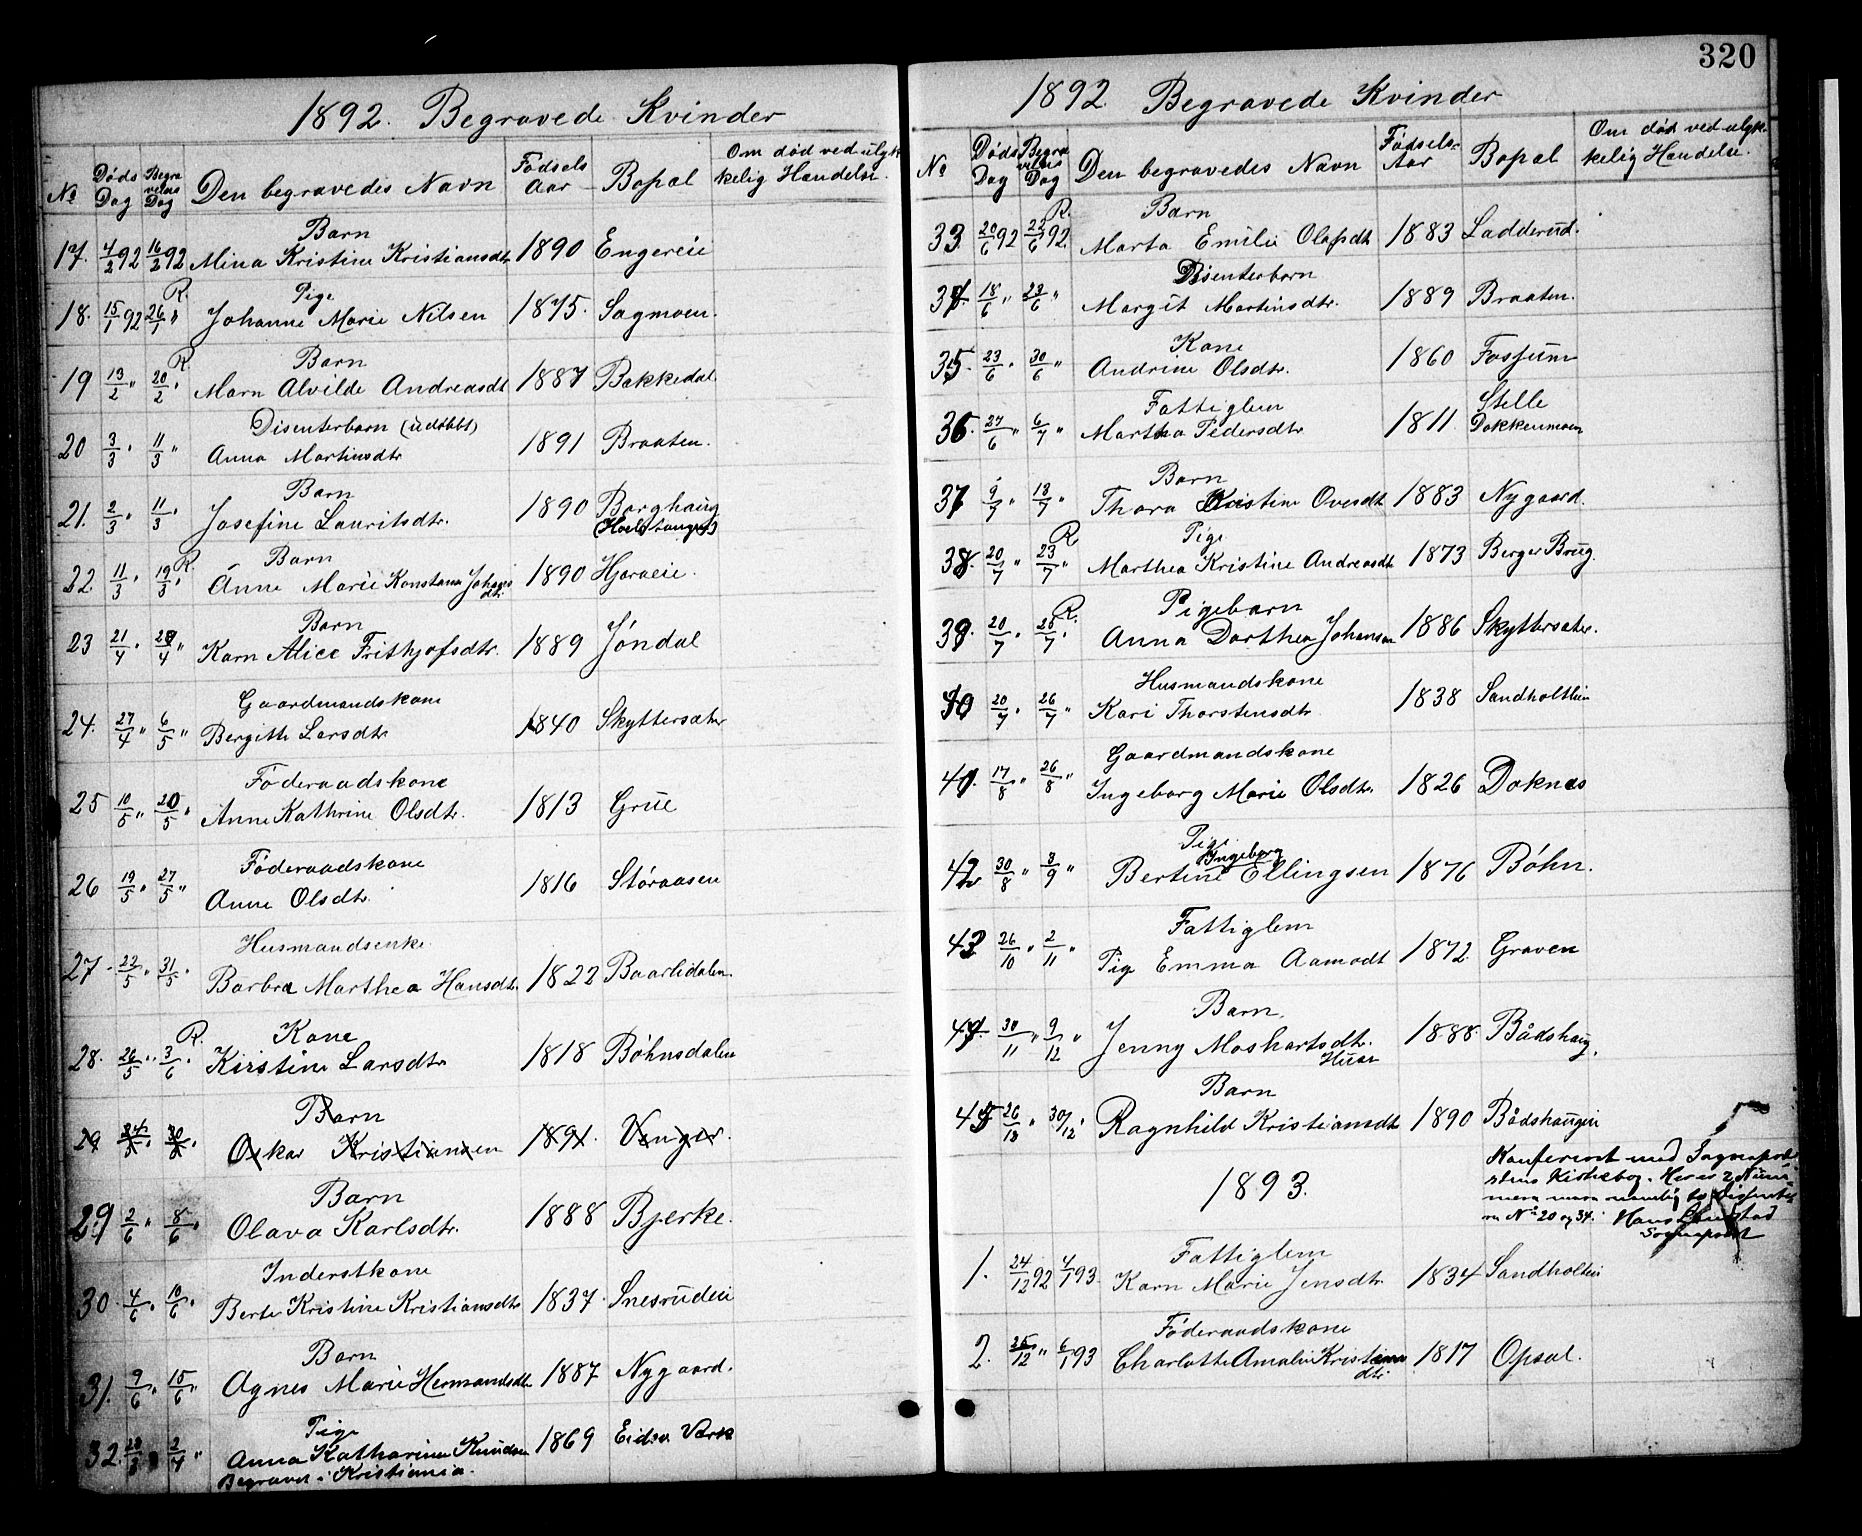 320
1892. Begravede Kvinder
No Døds Dag Begravelses Dag Den begravedes Navn Fødsels Aar Bopæl Om død ved ulyk-
kelig Hændelse.
Barn
17. 4/2 92 16/2 92 Mina Kristine Kristiansdtr. 1890 Engereie
R. Pige
18. 15/1 92 26/1 " Johanne Marie Nilsen 1875. Sagmoen.
R. Barn
19 13/2 " 20/2 " Marn Alvilde Andreasdt 1887 Bakkedal.
Disenterbarn (udøbbt)
20 3/3 " 11/3 " Anna Martinsdtr 1891 Braaten.
Barn
21. 2/3 " 11/3 " Josefine Lauritsdtr. 1890 Borghaug
R. Barn
22. 11/3 " 19/3 " Anne Marie Konstanse Johans
dtr. 1890 Hjeraeie.
Barn
23 21/4 " 29/4 " Karn Alice Frithjofsdtr. 1889 Jøndal
Gaardmandskone
24. 27/4 " 6/5 " Bergitte Larsdtr 1840 Skyttersæter
Føderaadskone
25 10/5 " 20/5 " Anne Kathrine Olsdtr. 1813 Grue
Føderaadskone
26 19/5 " 27/5 " Anne Olsdtr. 1816 Støraasen
Husmandsenke
27 22/5 " 31/5 " Barbra Marthea Hansdtr. 1822 Baarlidalen.
R. Kone
28. 26/5 " 3/6 " Kirstine Larsdtr 1818 Bøhnsdalen
Barn
29 Oskar Kristiansen 1891. Venger.
Barn
29 2/6 " 8/6 " Olava Karlsdtr. 1888 Bjerke.
Inderstkone
30. 4/6 " 10/6 " Berte Kristine Kristiansdtr 1837. Snesrudeie
Barn
31. 9/6 " 15/6 " Agnes Marie Hermandsdtr. 1887 Nygaard.
Pige
32. Anna Katharina Knudsen 1869 Eidsv. Værk
Begravet i Kristiania.
1892. Begravede Kvinder
No Døds Dag Begravelses Dag Den begravedes Navn Fødsels-Aar Bopæl Om død ved ulyk-
kelig Hændelse.
R. Barn
33 20/6 92 22/6 92 Marta Emilie Olafsdt 1883 Ladderud.
Disenterbarn
34. 18/6 " 23/6 " Margit Martinsdtr. 1889 Braaten.
Kone
35. 23/6 " 30/6 " Andrine Olsdtr. 1860 Fossum
Fattiglem
36. 27/6 " 6/7 " Martha Pedersdtr 1811 Stelle
Dokkenmoen
Barn
37 9/7 " 13/7 " Thora Kristine Ovesdt 1883 Nygaard.
R. Pige
38. 20/7 " 23/7 " Marthea Kristine Andreasdt 1873 Berger Brug.
R. Pigebarn
39. 20/7 " 25/7 " Anna Dorthea Johansen 1886 Skyttersæter.
Husmandskone
40 20/7 " 26/7 " Kari Thorstensdtr 1838 Sandholteie
Gaardmandskone
41. 17/8 " 26/8 " Ingeborg Marie Olsdtr. 1826 Doknæs
Pige
Ingeborg
42 30/8 " 3/9 " Bertine Ellingsen 1876 Bøhn.
Fattiglem
43 26/10 " 2/11 " Pige Emma Aamodt 1872 Graven
Barn.
44. 30/11 " 9/12 " Jenny Moshartsdtr. 1888. Bådshaug.
Huser
Barn
45 26/12 " 30/12 " Ragnhild Kristiansdt 1890 Bådshaugen
Konfereret med Sognepre-
stens Kirkebog. Her er 2 Num-
mere mere nemlig to Dissenter
No 20 og 34. Hans
Sogneprest
1893.
Fattiglem
1. 24/12 92 4/1 93. Karn Marie Jensdtr 1834 Sandholteie
Føderaadskone
2. 25/12 " 6/1 93 Charlotte Amalie Kristians
dtr. 1817 Opsal.